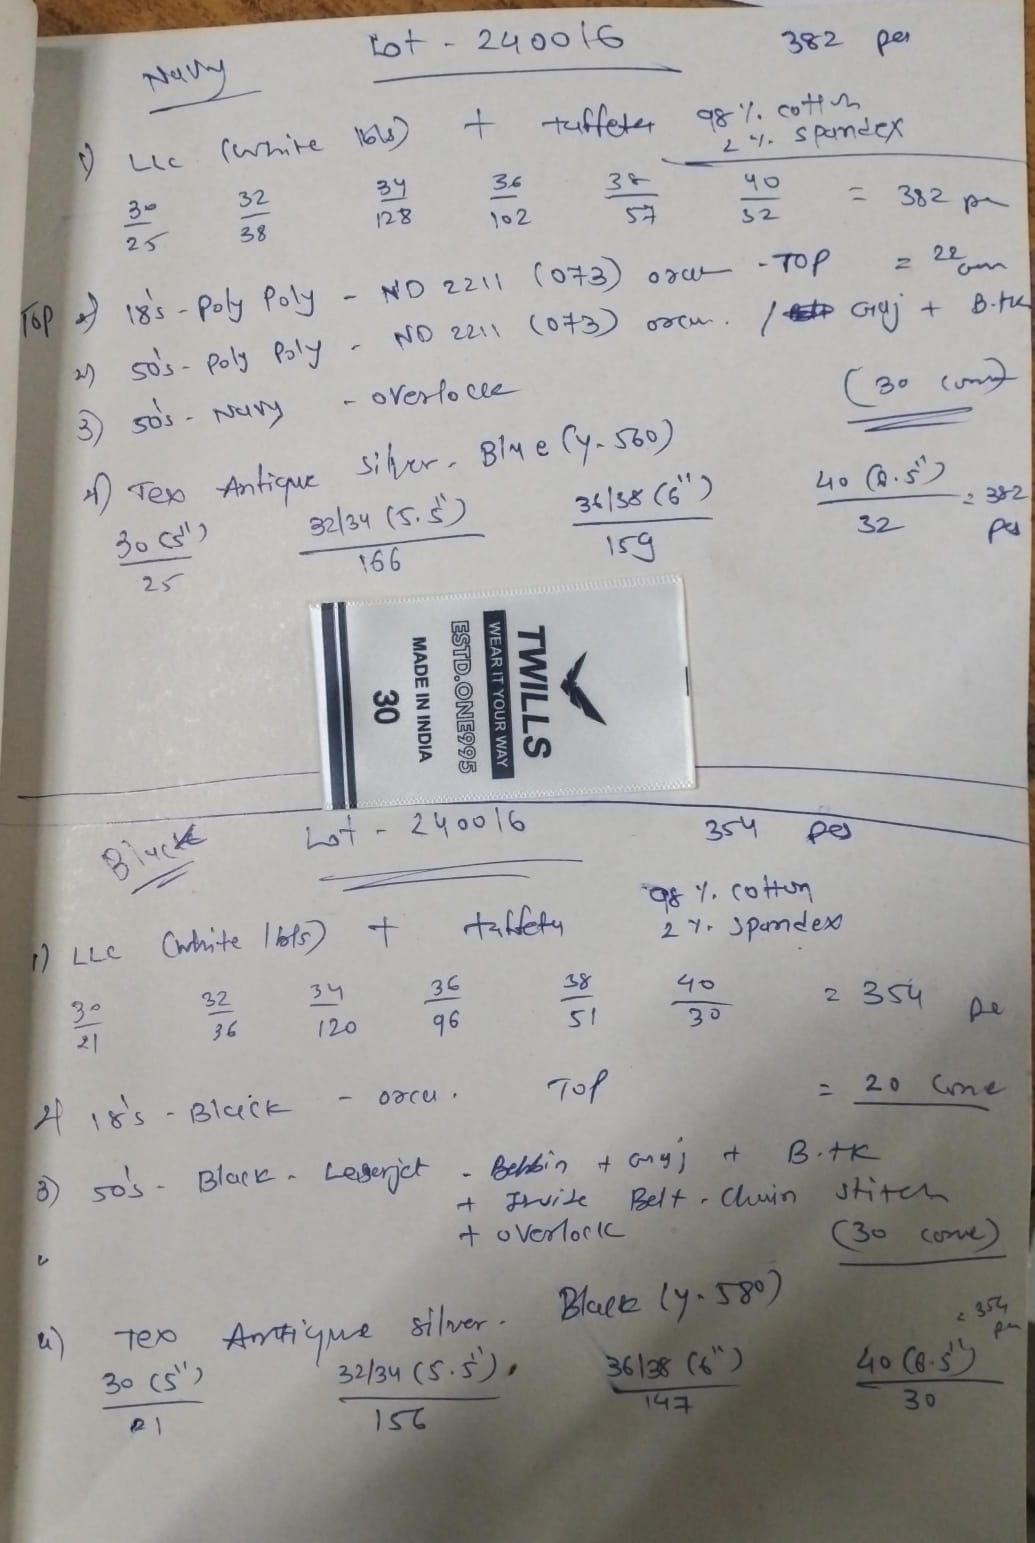 Navy
Lot - 240016
382 pcs
1) LLC (white lbls) + taffeta 98 %. cotton
2 %. spandex
30 32 34 36 38 40
25 38 128 102 57 32 = 382 pcs
Top 2) 18's - Poly Poly - ND 2211 (073) - TOP = 22
2) 50's - Poly Poly - ND 2211 (073) + B.tk
3) 50's - Navy - overlock
(30 cone)
4) Tex Antique silver. Blue (y-560)
30 (5") 32/34 (5.5") 36/38 (6") 40 (6.5")
25 166 159 32 = 382 pcs
TWILLS
WEAR IT YOUR WAY
ESTD.ONE995
MADE IN INDIA
30
Black
Lot - 240016
354 pcs
1) LLC (white lbls) + taffeta 98 %. cotton
2 %. spandex
30 32 34 36 38 40
21 36 120 96 51 30 = 354 pc
2) 18's - Black - TOP = 20 cone
3) 50's - Black - - Bobbin + + B.tk
+ Inside Belt - Chain stitch
+ overlock (30 cone)
4) Tex Antique silver. Black (y-580) = 354 pcs
30 (5") 32/34 (5.5") 36/38 (6") 40 (6.5")
21 156 147 30